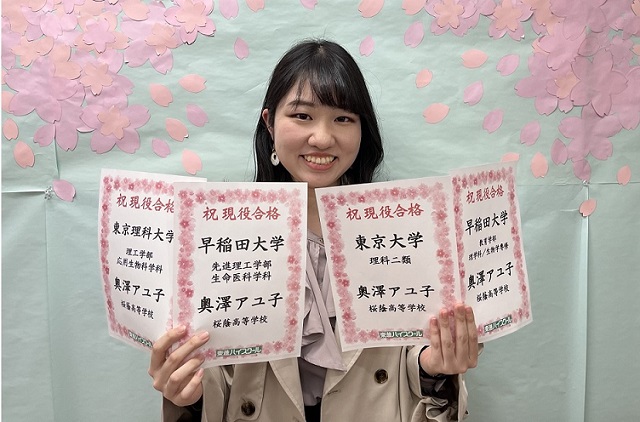 祝 現役合格
東京理科大学
理工学部
応用生物科学科
奥澤アユ子
桜蔭高等学校
祝 現役合格
早稲田大学
先進理工学部
生命医科学科
奥澤アユ子
桜蔭高等学校
東進ハイスクール
祝 現役合格
東京大学
理科二類
奥澤アユ子
桜蔭高等学校
東進ハイスクール
祝 現役合格
早稲田大学
教育学部
理学科/生物学専修
奥澤アユ子
桜蔭高等学校
東進ハイスクール